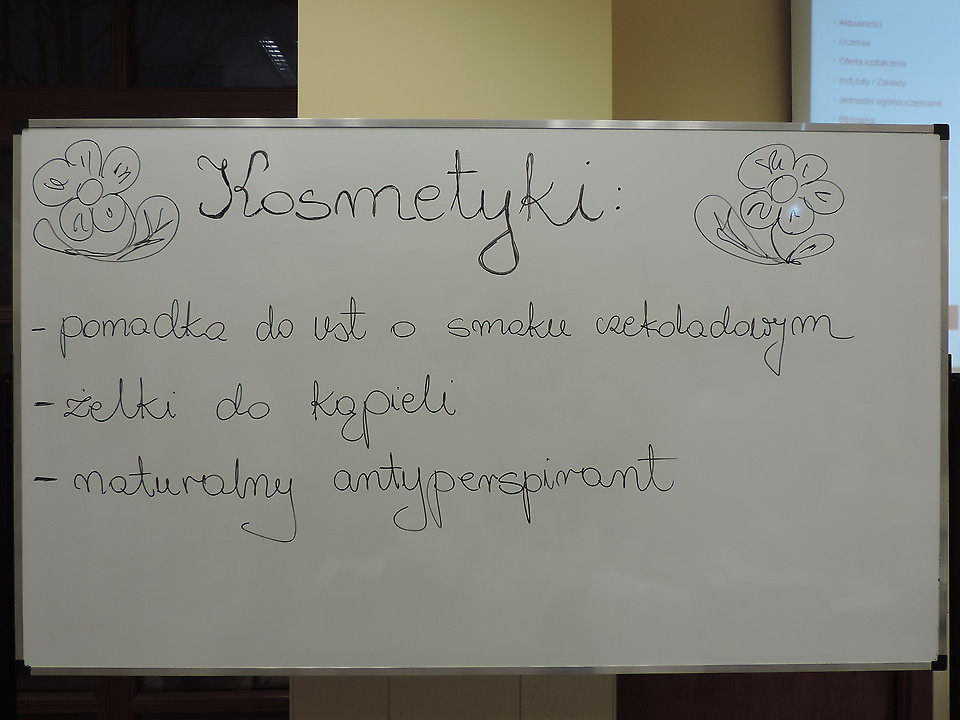 Aktualności
Uczelnia
Oferta kształcenia
Instytuty / Zakłady
Jednostki ogólnouczelniane
Biblioteka
Kosmetyki:
- pomadka do ust o smaku czekoladowym
- żelki do kąpieli
- naturalny antyperspirant